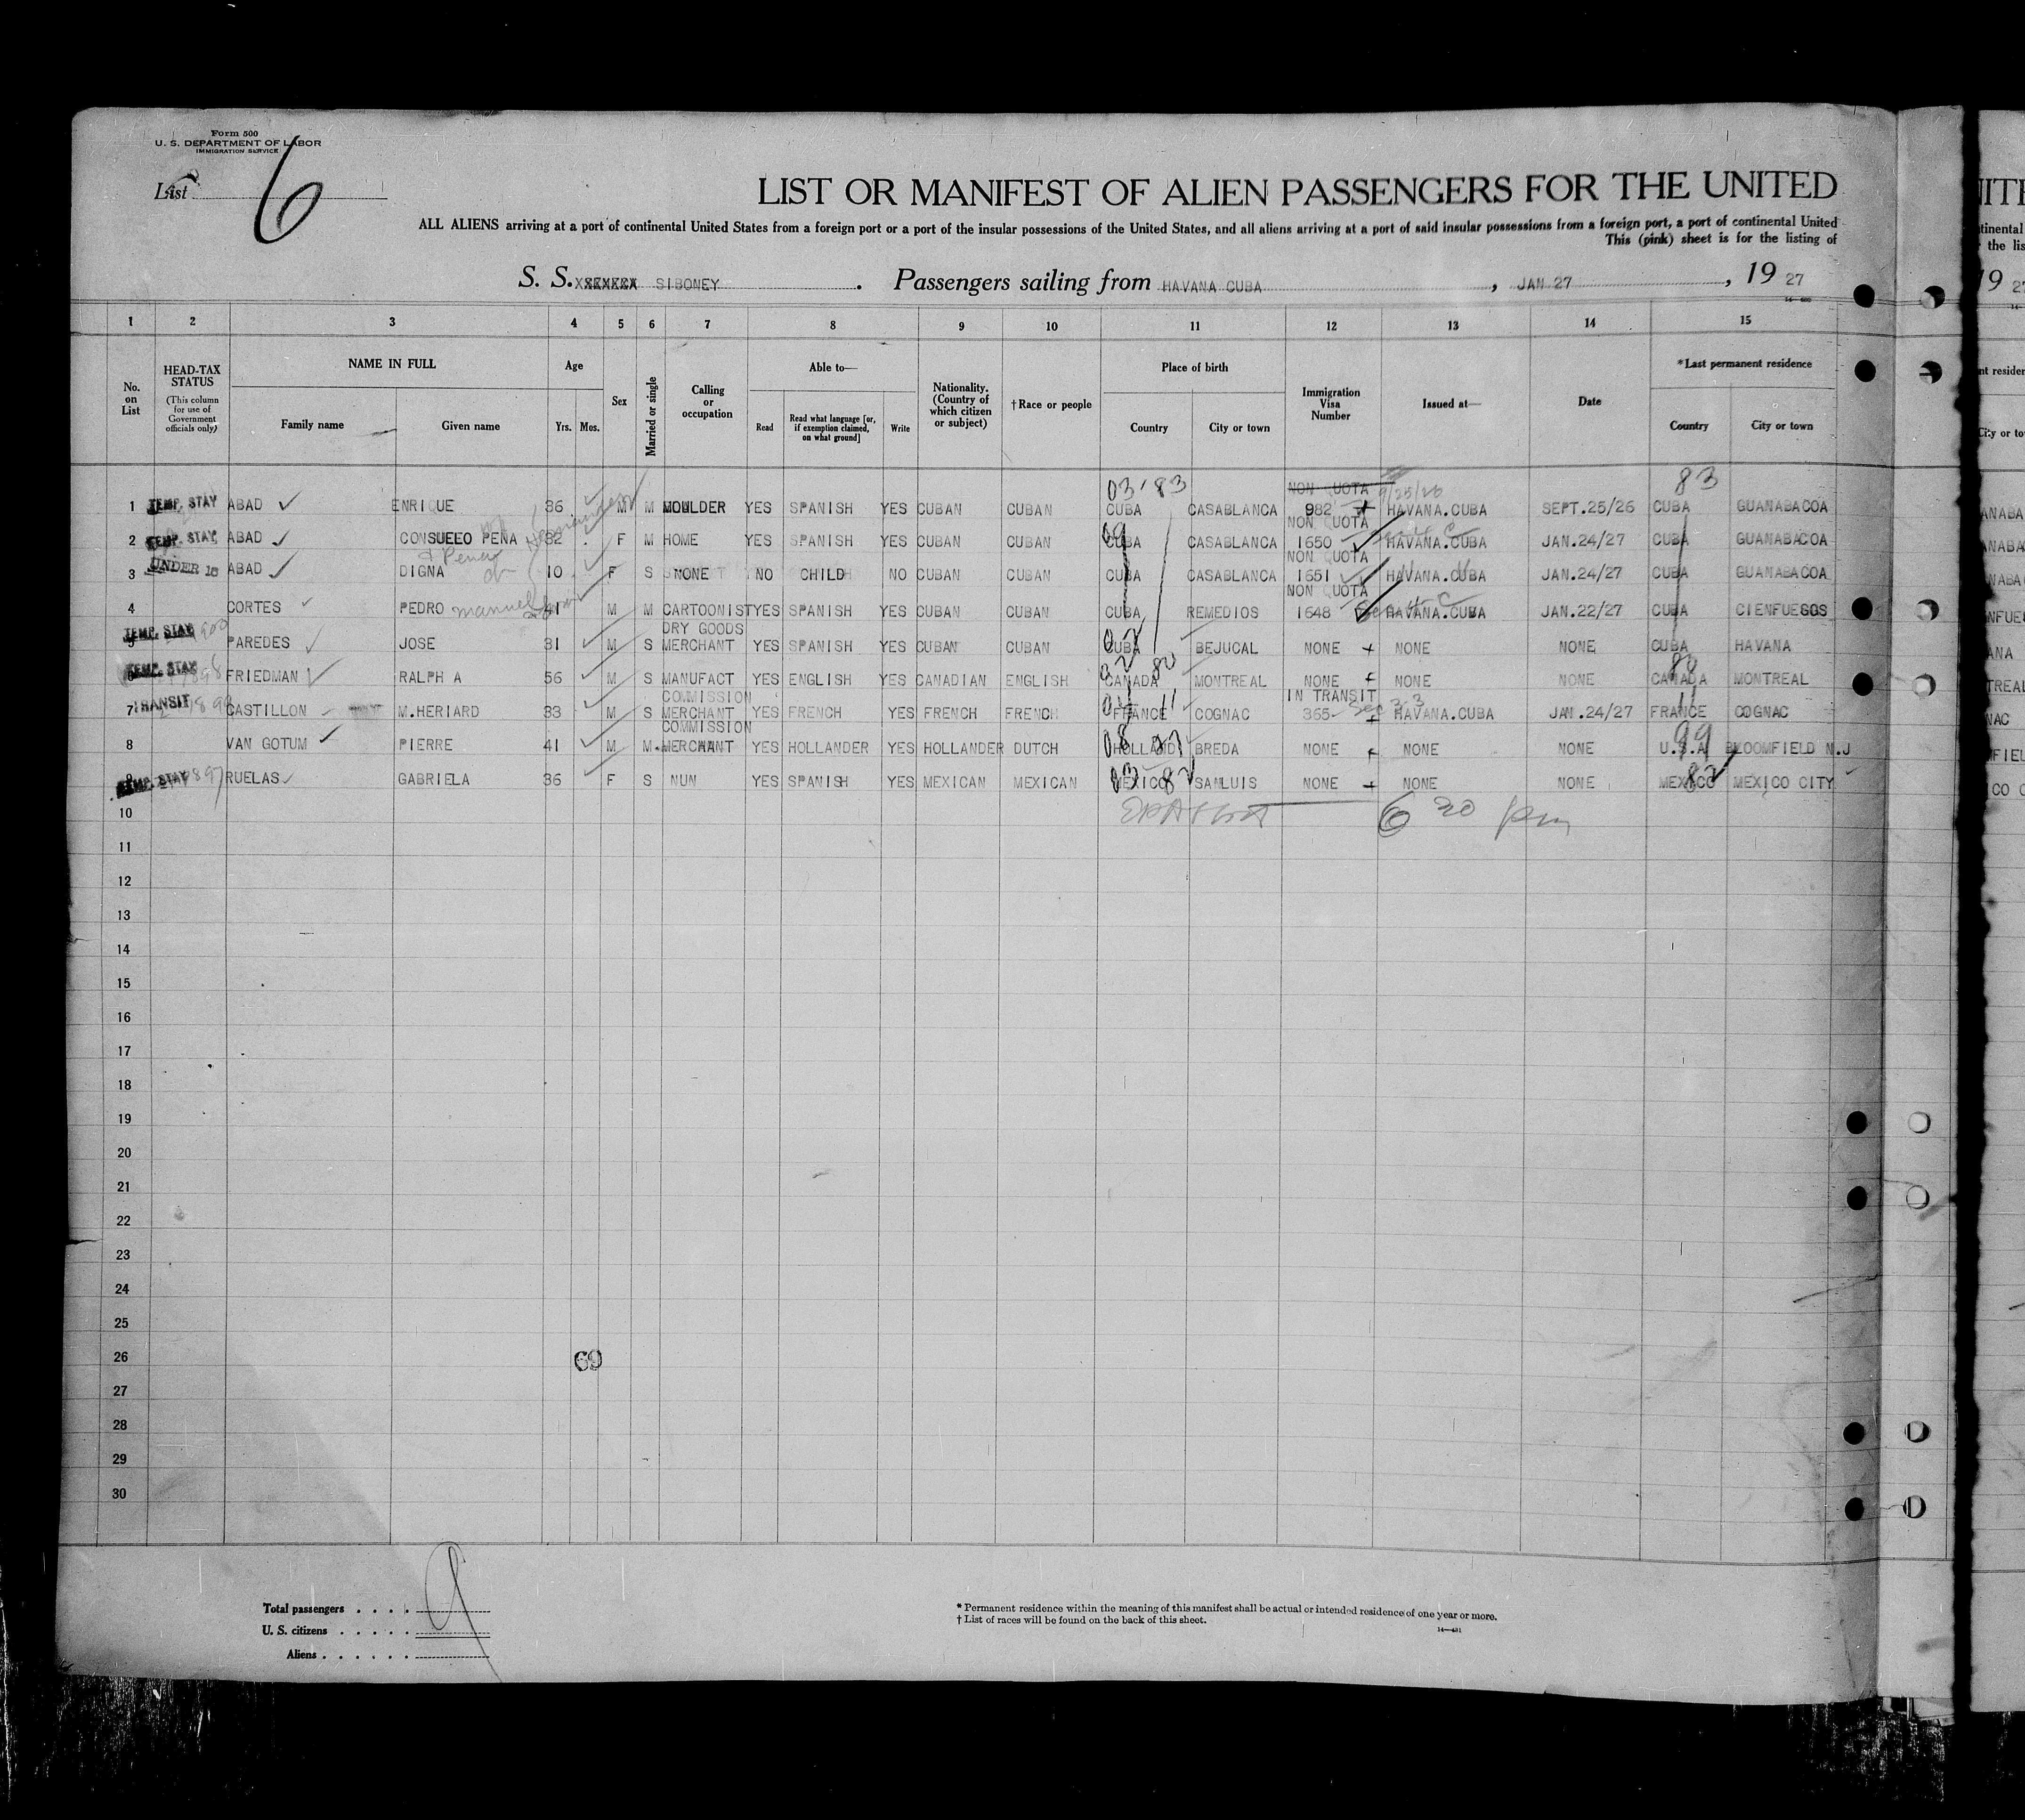 Form 500
U. S. DEPARTMENT OF LABOR
IMMIGRATION SERVICE
List 6
LIST OR MANIFEST OF ALIEN PASSENGERS FOR THE UNITED
ALL ALIENS arriving at a port of continental United States from a foreign port or a port of the insular possessions of the United States, and all aliens arriving at a port of said insular possessions from a foreign port, a port of continental United
This (pink) sheet is for the listing of
S. S. SIBONEY. Passengers sailing from HAVANA CUBA, JAN 27, 19 27
1 2 3 4 5 6 7 8 9 10 11 12 13 14 15
No. on List
HEAD-TAX STATUS (This column for use of Government officials only)
NAME IN FULL
Family name
Given name
Age
Yrs. Mos.
Sex
Married or single
Calling or occupation
Able to—
Read
Read what language [or, if exemption claimed, on what ground]
Write
Nationality. (Country of which citizen or subject)
†Race or people
Place of birth
Country
City or town
Immigration Visa Number
Issued at—
Date
*Last permanent residence
Country
City or town
03 83 NON QUOTA 9/25/26 83
1 TEMP. STAY ABAD ENRIQUE 36 M M MOULDER YES SPANISH YES CUBAN CUBAN CUBA CASABLANCA 982 HAVANA.CUBA SEPT.25/26 CUBA GUANABACOA
NON QUOTA
2 TEMP. STAY ABAD CONSUELO PEÑA 32 F M HOME YES SPANISH YES CUBAN CUBAN CUBA CASABLANCA 1650 HAVANA.CUBA JAN.24/27 CUBA GUANABACOA
Pena NON QUOTA
3 UNDER 16 ABAD DIGNA 10 F S NONE NO CHILD NO CUBAN CUBAN CUBA CASABLANCA 1651 HAVANA.CUBA JAN.24/27 CUBA GUANABACOA
NON QUOTA
4 CORTES PEDRO manuel 41 M M CARTOONIST YES SPANISH YES CUBAN CUBAN CUBA REMEDIOS 1648 HAVANA.CUBA JAN.22/27 CUBA CIENFUEGOS
DRY GOODS
5 TEMP. STAY PAREDES JOSE 31 M S MERCHANT YES SPANISH YES CUBAN CUBAN CUBA BEJUCAL NONE NONE NONE CUBA HAVANA
6 TEMP. STAY FRIEDMAN RALPH A 56 M S MANUFACT YES ENGLISH YES CANADIAN ENGLISH CANADA MONTREAL NONE NONE NONE CANADA MONTREAL
COMMISSION IN TRANSIT
7 TRANSIT CASTILLON M.HERIARD 33 M S MERCHANT YES FRENCH YES FRENCH FRENCH FRANCE COGNAC 365 HAVANA.CUBA JAN.24/27 FRANCE COGNAC
COMMISSION
8 VAN GOTUM PIERRE 41 M M MERCHANT YES HOLLANDER YES HOLLANDER DUTCH HOLLAND BREDA NONE NONE NONE U.S.A BLOOMFIELD N.J
9 TEMP. STAY RUELAS GABRIELA 36 F S NUN YES SPANISH YES MEXICAN MEXICAN MEXICO SANLUIS NONE NONE NONE MEXICO MEXICO CITY
10 6 30 pm
11
12
13
14
15
16
17
18
19
20
21
22
23
24
25
26 69
27
28
29
30
Total passengers . . . . 9
U. S. citizens . . . . .
Aliens . . . . . .
* Permanent residence within the meaning of this manifest shall be actual or intended residence of one year or more.
† List of races will be found on the back of this sheet.